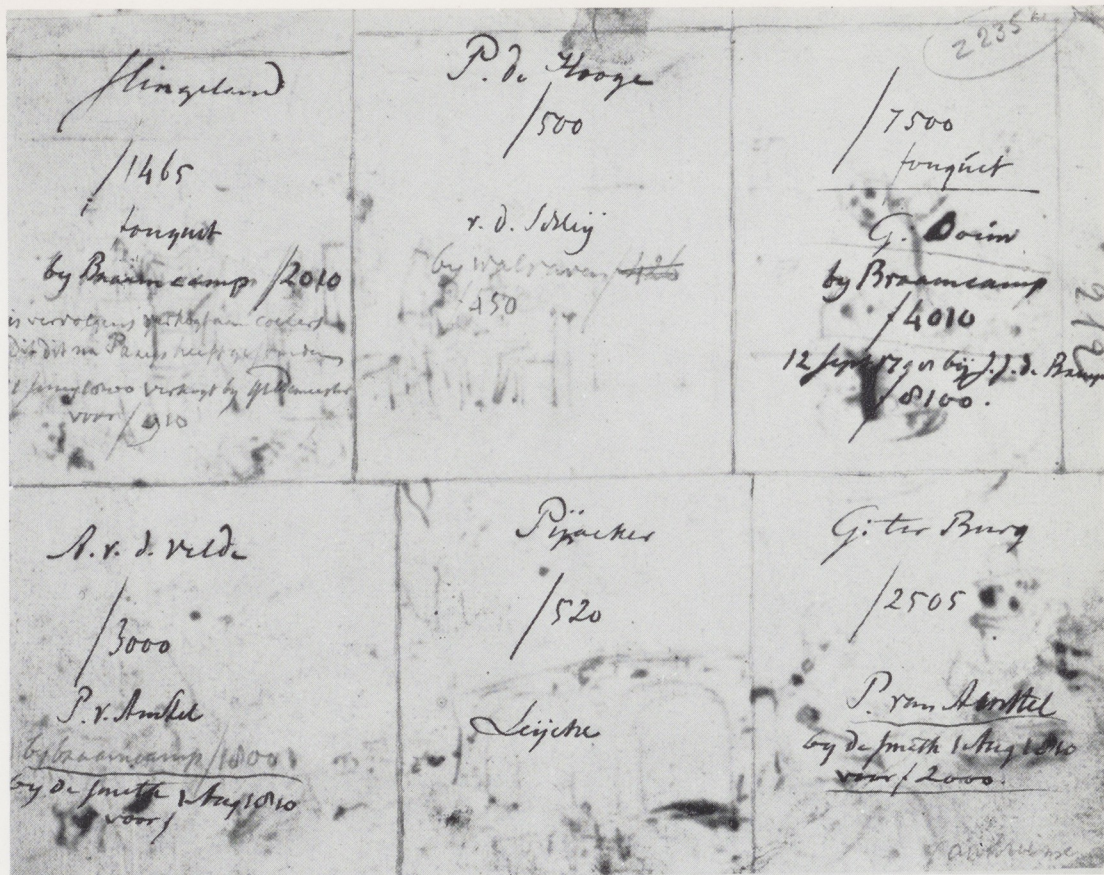 Slingeland
ƒ1465
fouquet
by Braamcamp ƒ2010
is vervolgens verkogt aan
Dit dit na Parys heeft
verkogt by
voor ƒ910
P. de Hooge
ƒ500
v. d. Schley
by
450
Z 235
ƒ7500
fouquet
G. Douw
by Braamcamp
ƒ4010
12 Sept bij J. J. de
ƒ8100.
212
A. v. d. Velde
ƒ3000
P. v. Amstel
by braamcamp ƒ1800
by de Smeth 1 Aug 1810
voor ƒ
Pijnacker
ƒ520
Leijche
G. ter Burg
ƒ2505
P. van Amstel
by de Smeth 1 Aug 1810
voor ƒ2000.